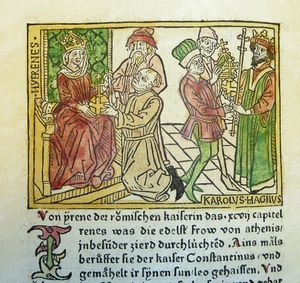 HERENES
KAROLVS·MAGNVS
Von yrene der römischen kaiserin das·xcvij capitel
Irenes was die edelst frow von athenis,
jnbesüder zierd durchlüchtd. Ains mals
berüffet sie der kaiser Constantinus/ vnd
gemähelt ir synen sun·leo gehaissen. Vnd